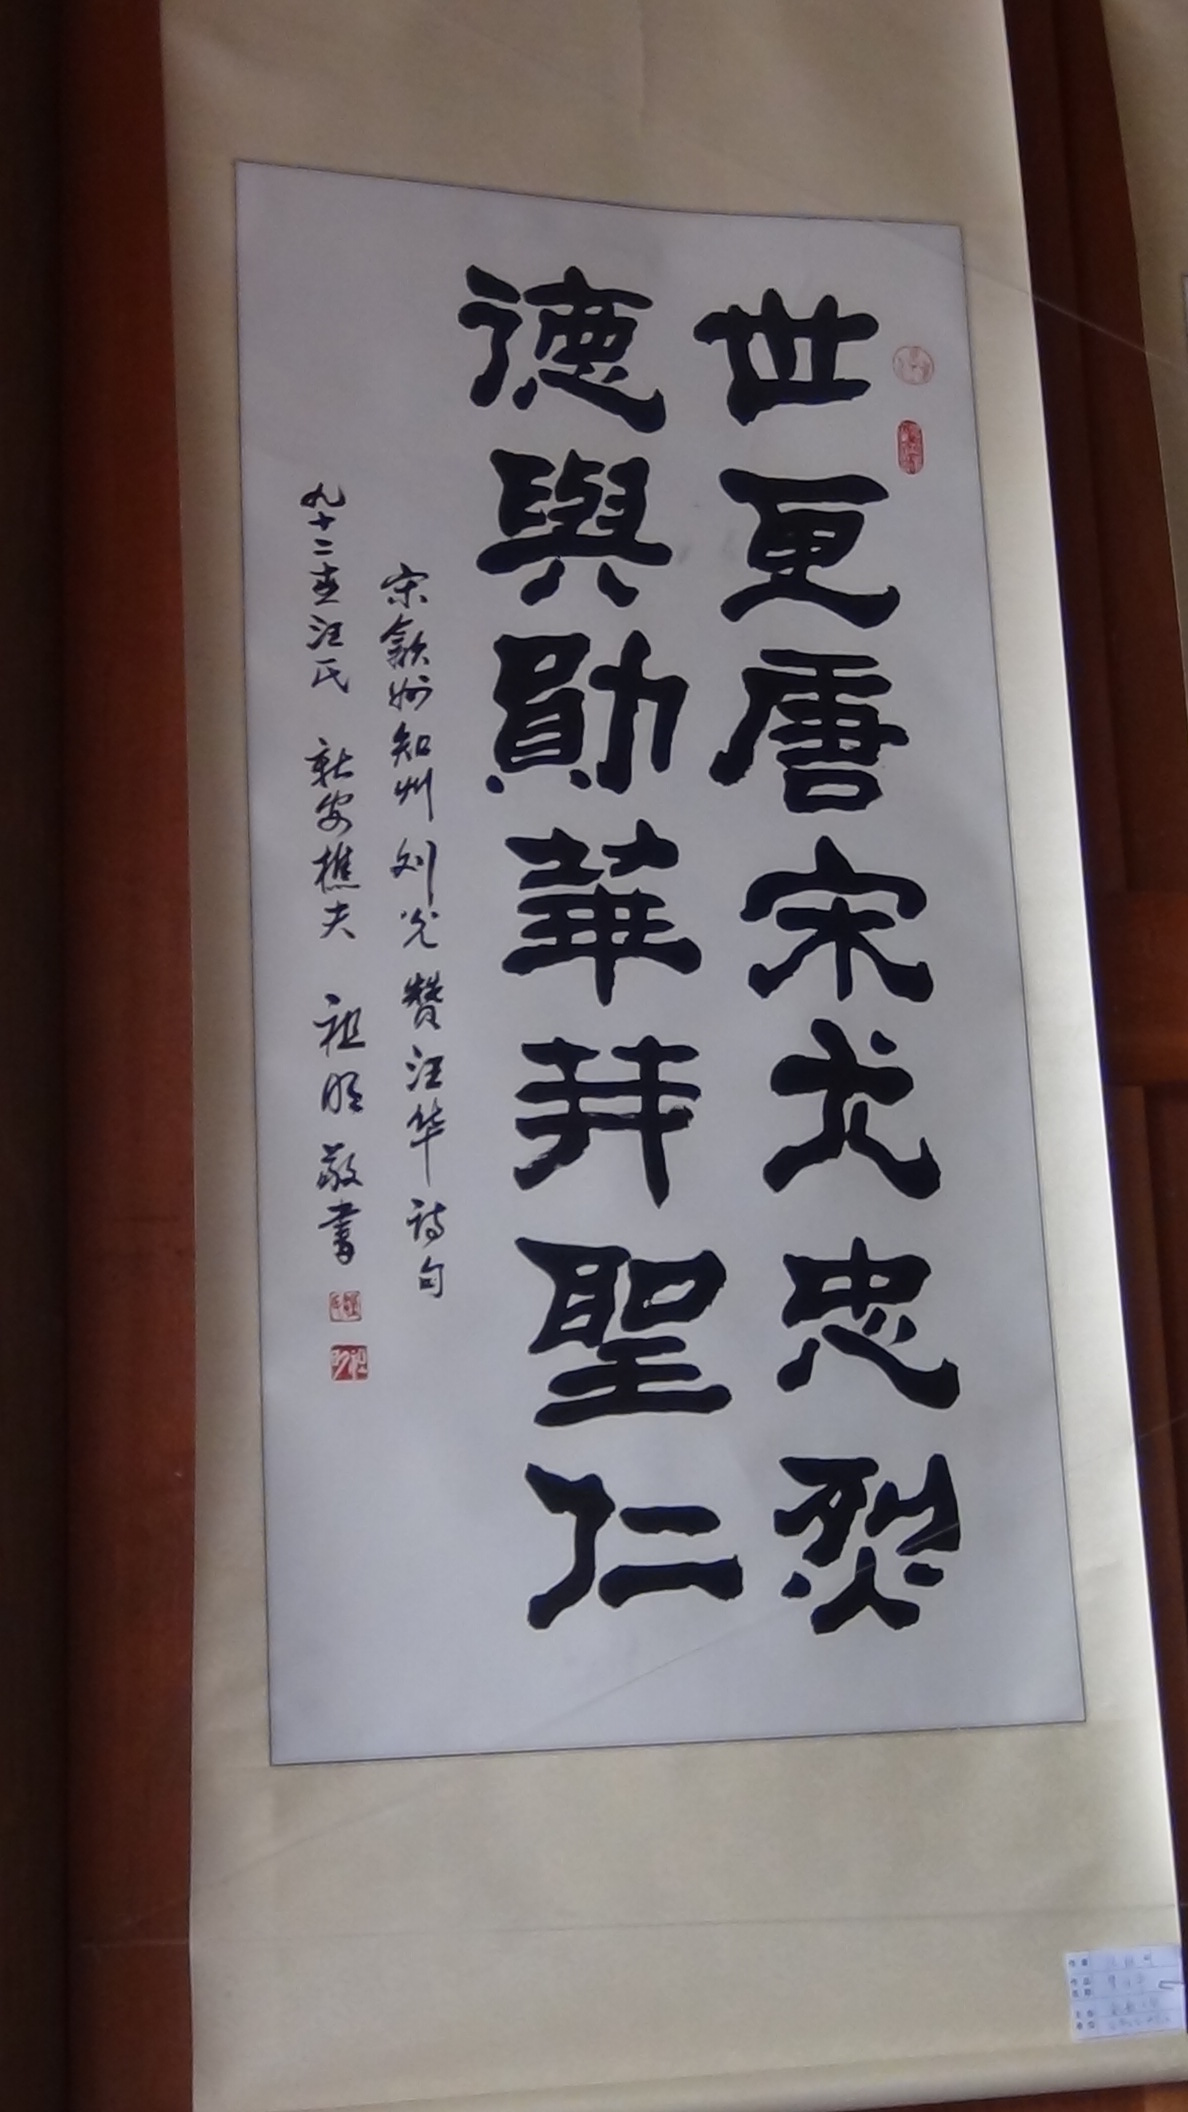 世更唐宋尤忠烈
德與勛華并聖仁
宋歙州知州刘光赞汪华诗句
九十二世汪氏 新安樵夫 祖明敬書